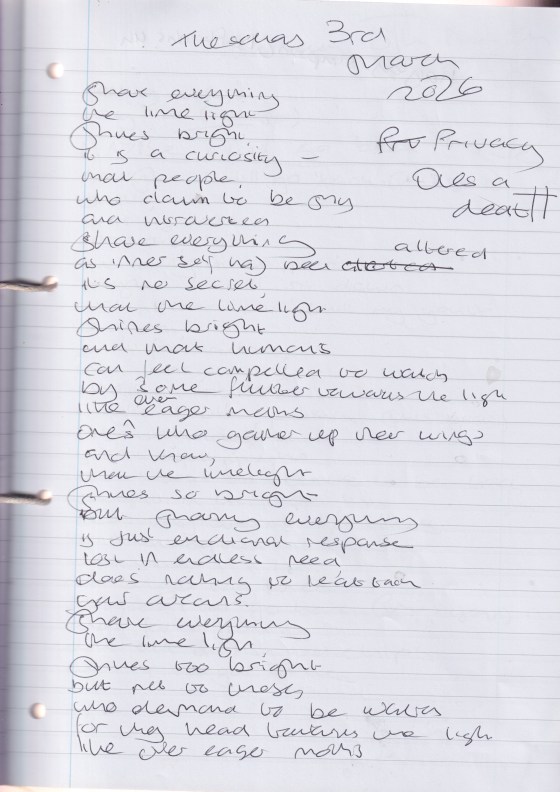 Tuesday 3rd
March
2026
Share everything
the lime light
Shines bright
it is a curiosity –
that people,
who claim to be shy
and introverted
Privacy
Dies a
death
Share everything
as inner self has been altered
it's no secret,
that the limelight
Shines bright
and that humans
can feel compelled to watch
by some flutter towards the light
like over eager moths
ones who gather up their wings
and know,
that the limelight
Shines so bright
but sharing everything
is just emotional response
lost in endless need,
does nothing to
your
Share everything
the lime light,
Shines too bright
but not to those,
who demand to be watched
for they head towards the light
like over eager moths